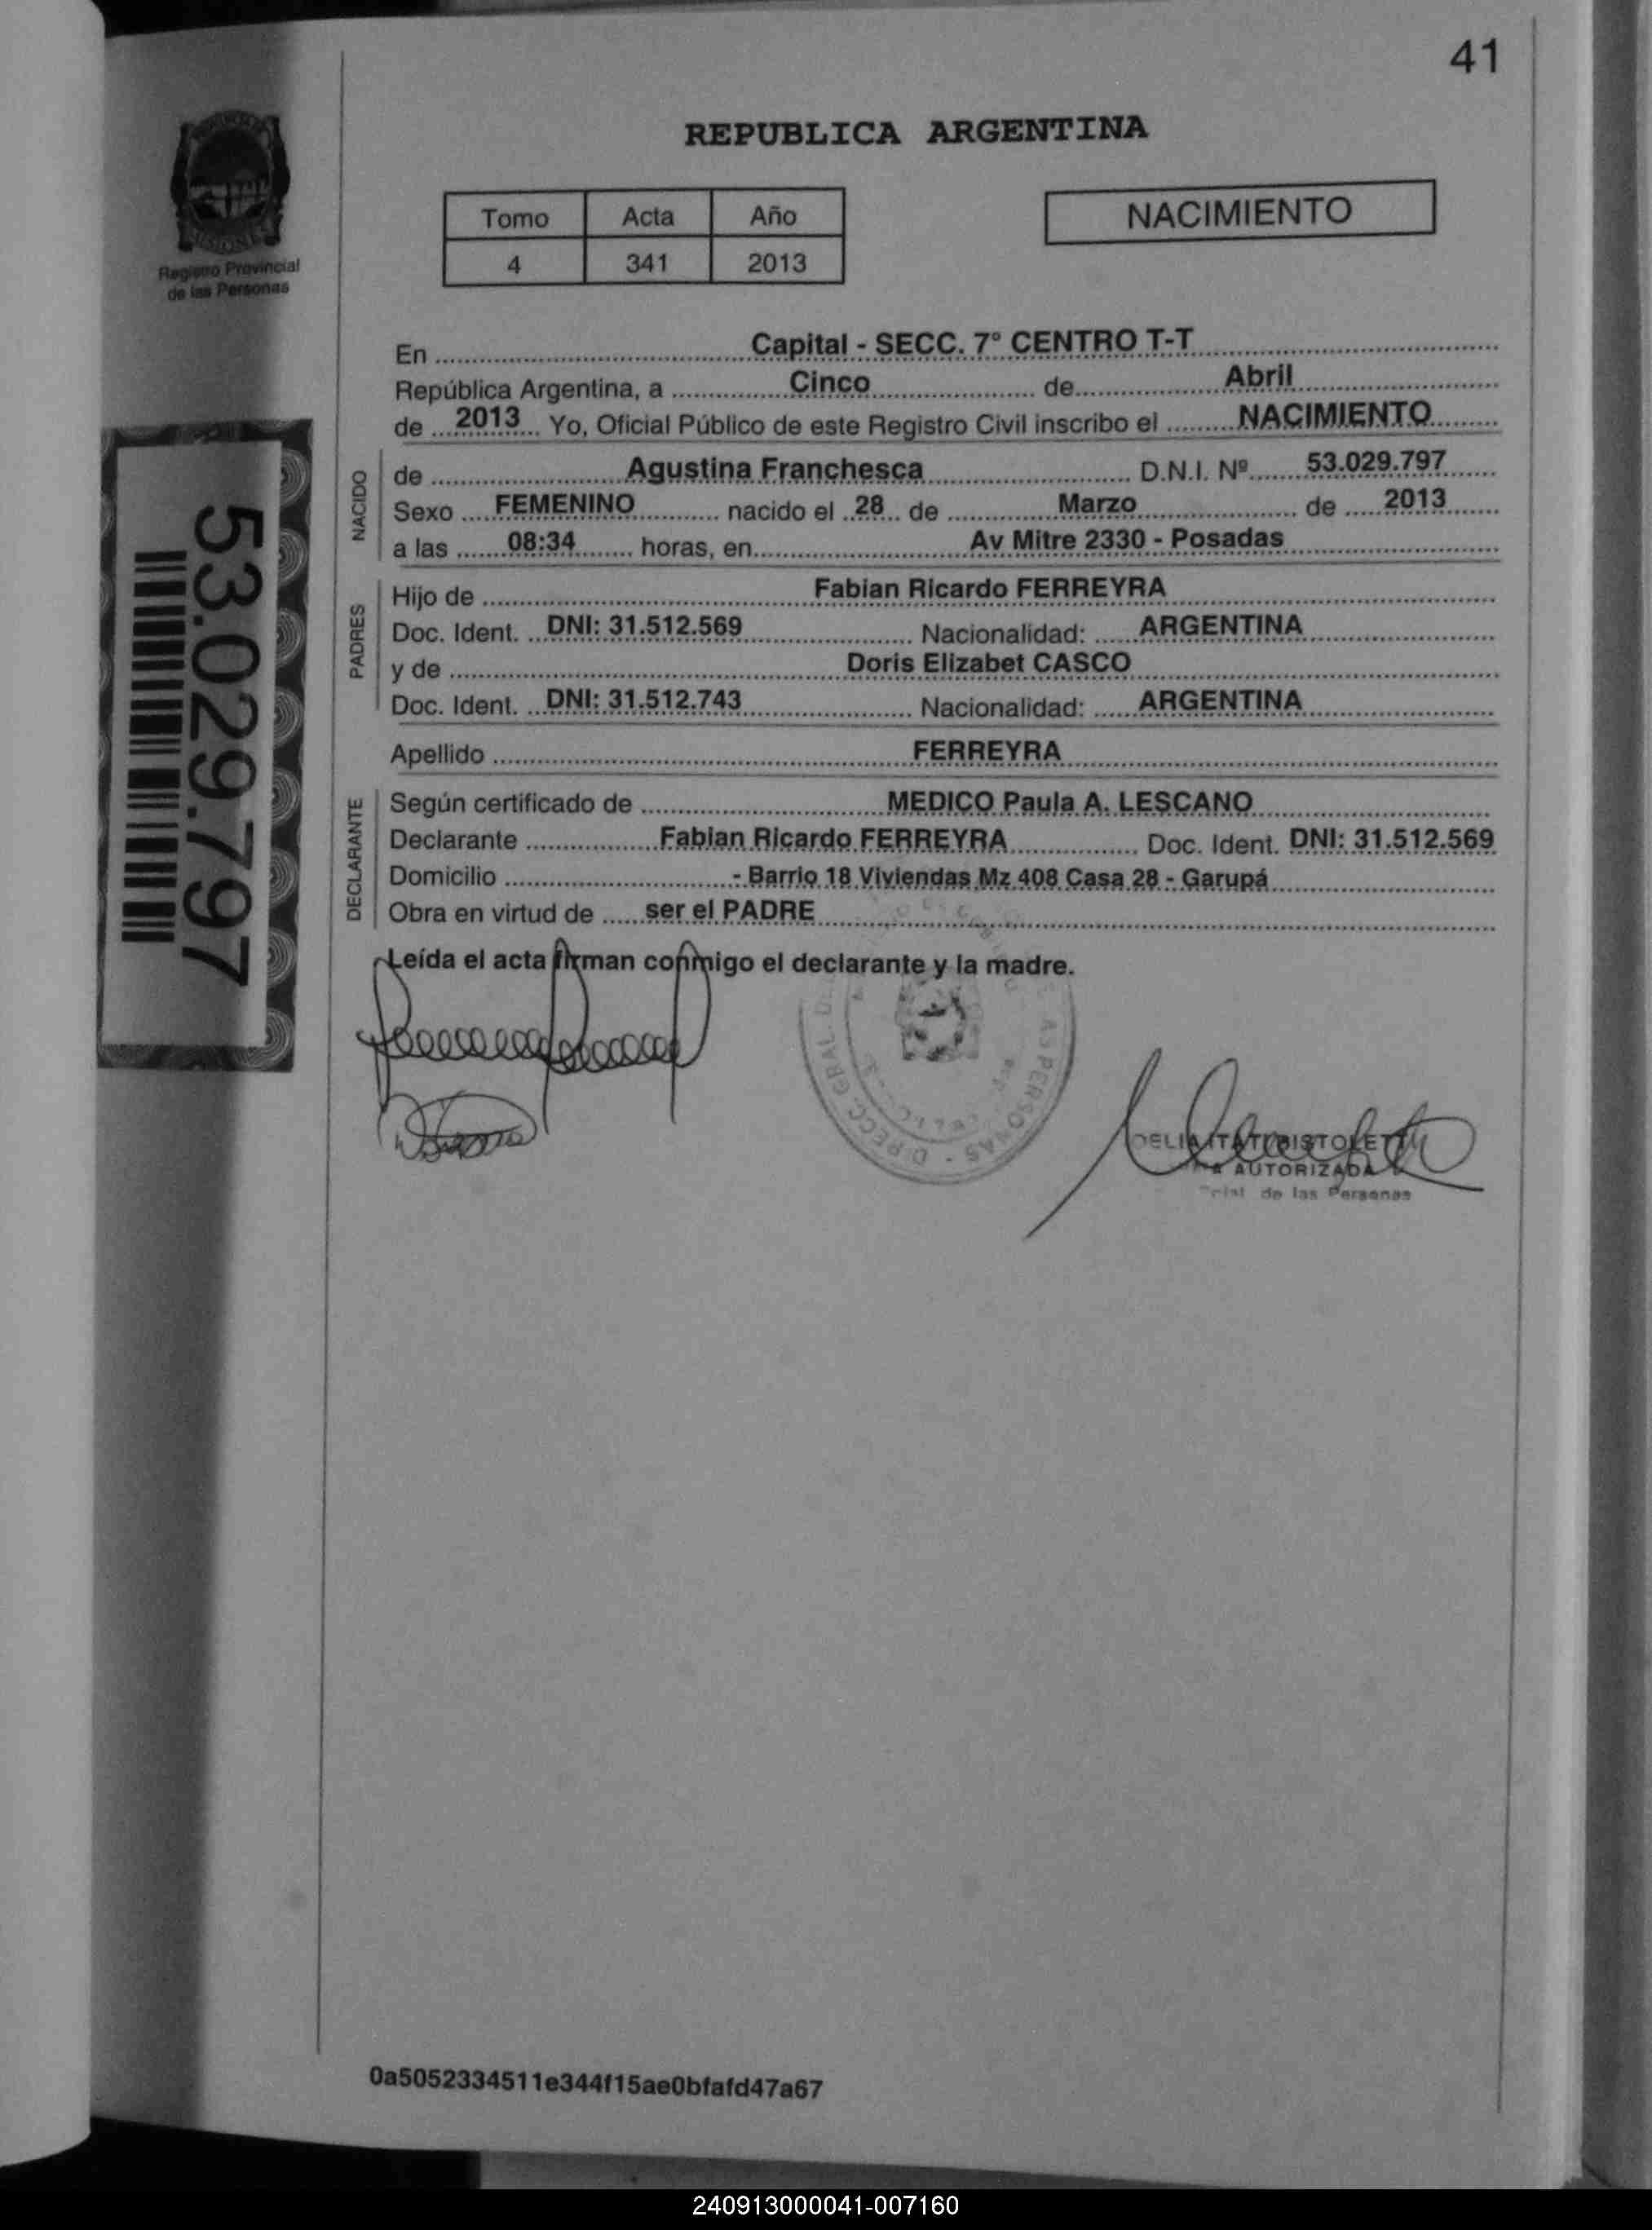 41
REPUBLICA ARGENTINA
Registro Provincial
de las Personas
Tomo Acta Año
4 341 2013
NACIMIENTO
En Capital - SECC. 7° CENTRO T-T
República Argentina, a Cinco de Abril
de 2013 Yo, Oficial Público de este Registro Civil inscribo el NACIMIENTO
NACIDO
de Agustina Franchesca D.N.I. Nº 53.029.797
Sexo FEMENINO nacido el 28 de Marzo de 2013
a las 08:34 horas, en Av Mitre 2330 - Posadas
PADRES
Hijo de Fabian Ricardo FERREYRA
Doc. Ident. DNI: 31.512.569 Nacionalidad: ARGENTINA
y de Doris Elizabet CASCO
Doc. Ident. DNI: 31.512.743 Nacionalidad: ARGENTINA
Apellido FERREYRA
DECLARANTE
Según certificado de MEDICO Paula A. LESCANO
Declarante Fabian Ricardo FERREYRA Doc. Ident. DNI: 31.512.569
Domicilio - Barrio 18 Viviendas Mz 408 Casa 28 - Garupá
Obra en virtud de ser el PADRE
Leída el acta firman conmigo el declarante y la madre.
53.029.797
AUTORIZADA
de las Personas
0a5052334511e344f15ae0bfafd47a67
240913000041-007160